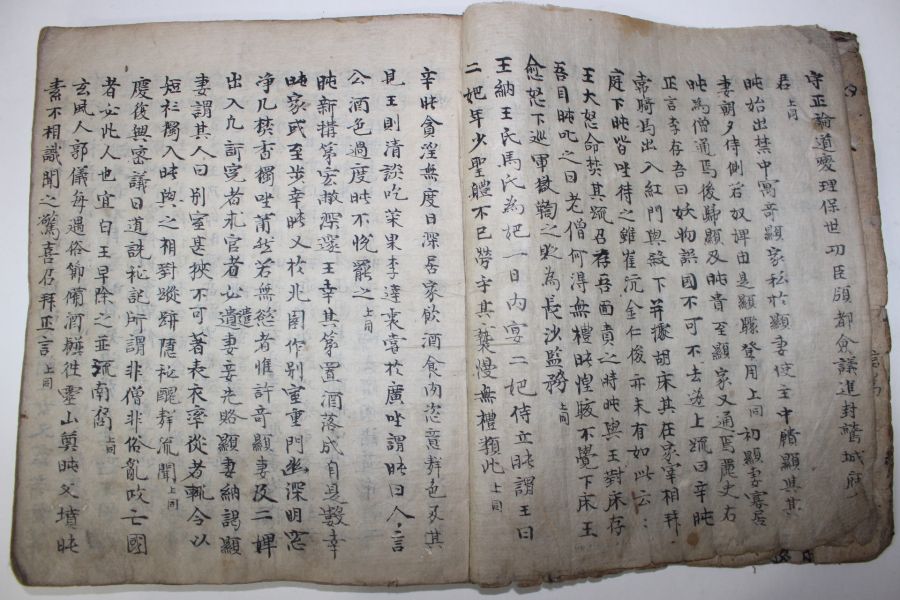 守正論道燮理保世功臣領都僉議進封鷲城府
君 上同
旽始出禁中寓奇顯家私於顯妻使主中饋顯與其
妻朝夕侍側若奴婢由是顯驟登用上同初顯妻寡居
旽為僧通焉後歸顯及旽貴至顯家又通焉麗史右
正言李存吾曰妖物誤國不可不去遂上䟽曰辛旽
常騎馬出入紅門與殿下並據胡床其在家宰相拜
庭下旽皆坐待之雖崔沆金仁俊亦未有如此云云
王大怒命焚其䟽召存吾面責之時旽與王對床存
吾目旽叱之曰老僧何得無禮旽惶駭不覺下床王
愈怒下巡軍獄鞫之貶為長沙監務 上同
王納王氏馬氏為妃一日內宴二妃侍立旽謂王曰
二妃年少聖體不已勞乎其䙝慢無禮類此 上同
辛旽貪淫無度日深居家飲酒食肉恣意聲色及其
見王則清談吃菜果李達衷嘗於廣坐謂旽曰人言
公酒色過度旽不悅罷之 上同
旽新搆第宏敞深邃王幸其第置酒落成自是數幸
旽家或至步幸旽又於北園作別室重門幽深明窓
淨几焚香獨坐蕭然若無慾者惟許奇顯妻及二婢
出入凡訴冤者求官者必遣妻妾先賂顯妻納謁顯
妻謂其人曰別室甚挾不可著表衣率從者輒令以
短衫獨入旽與之相對蹤跡隱秘醜聲流聞 上同
慶復興密議曰道詵秘記所謂非僧非俗亂政亡國
者必此人也宜白王早除之並流南裔 上同
玄風人郭儀每遇俗節備酒饌徃靈山奠旽父墳旽
素不相識聞之驚喜召拜正言 上同